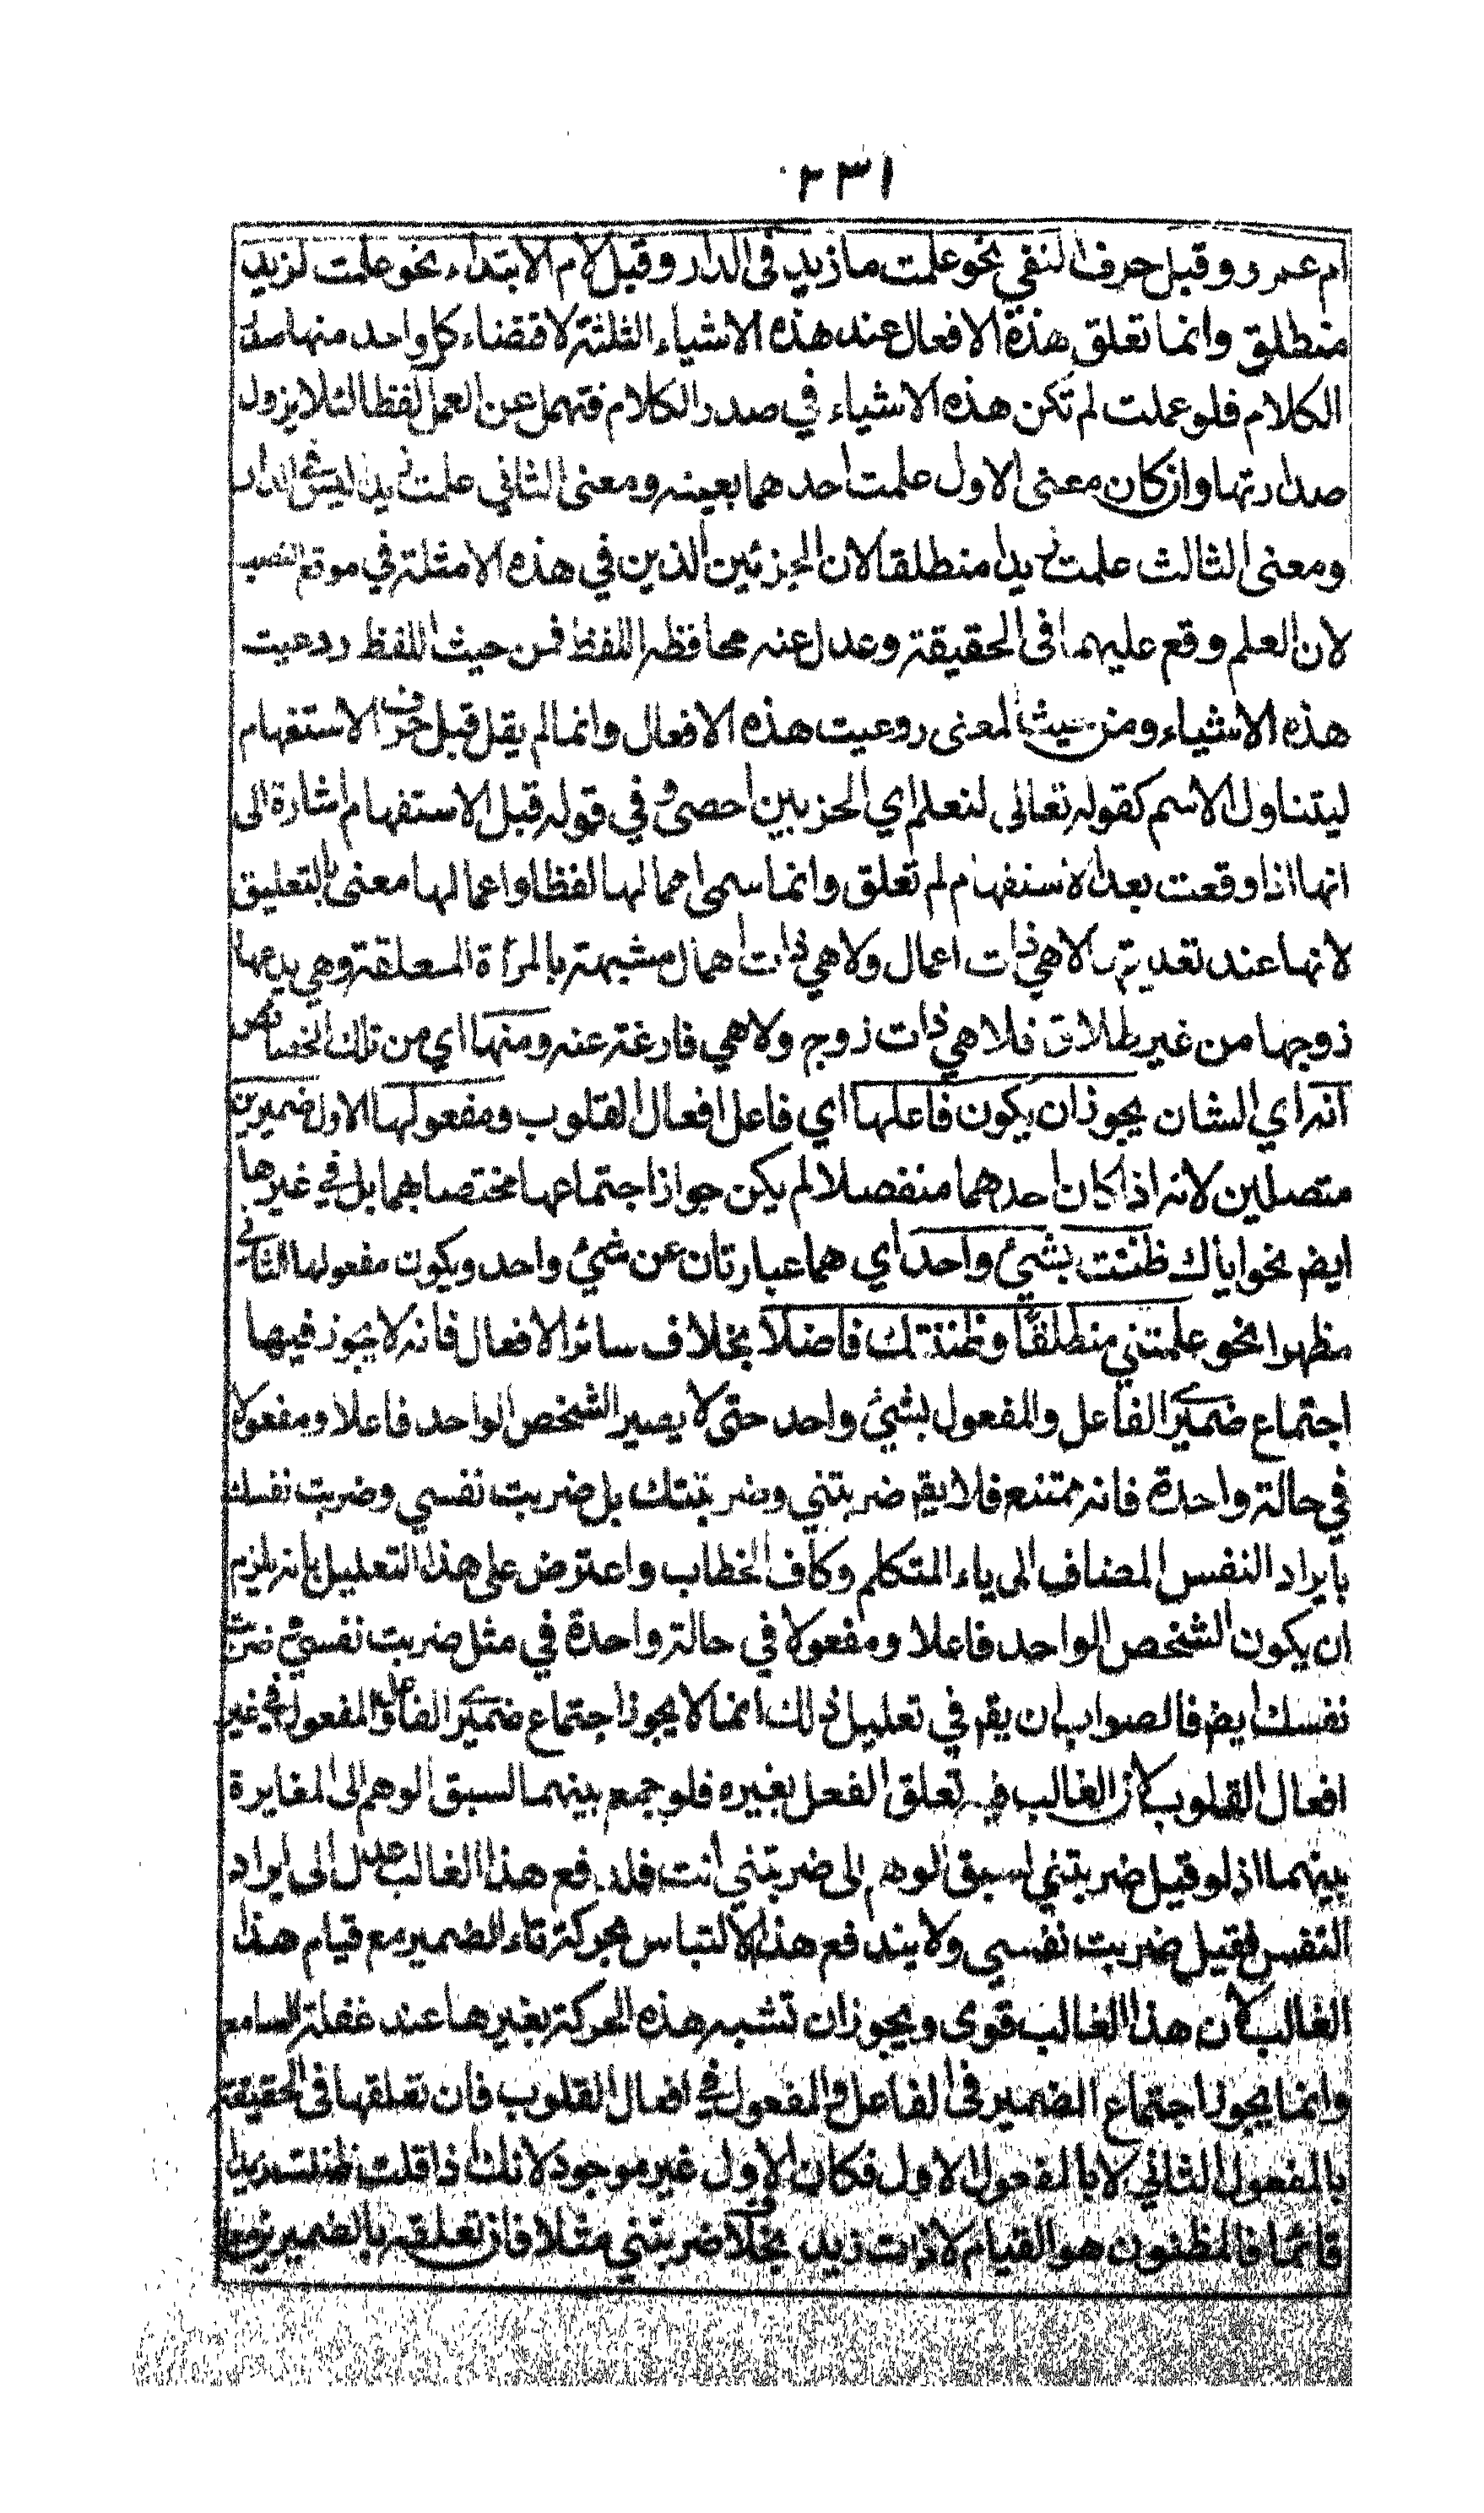 ١٣٢
ام عمرو وقبل حرف النفي نحو علمت ما زيد فى الدار وقبل لام الابتداء نحو علمت لزيد
منطلق وانما تعلق هذه الافعال عند هذه الاشياء الثلثة لاقتضاء كل واحد منها صدر
الكلام فلو عملت لم تكن هذه الاشياء في صدر الكلام فتهمل عن العمل لفظا لئلا يزول
صدارتها وان كان معنى الاول علمت احدهما بعينه ومعنى الثاني علمت زيدا ليس في الدار
ومعنى الثالث علمت زيدا منطلقا لان الجزئين الذين في هذه الامثلة في موقع النصب
لان العلم وقع عليهما فى الحقيقة وعدل عنه محافظة اللفظ فمن حيث اللفظ روعيت
هذه الاشياء ومن حيث المعنى روعيت هذه الافعال وانما لم يقل قبل حرف الاستفهام
ليتناول الاسم كقوله تعالى لنعلم اي الحزبين احصى و في قوله قبل الاستفهام اشارة الى
انها اذا وقعت بعد الاستفهام لم تعلق وانما سمى اهمالها لفظا واعمالها معنى بالتعليق
لانها عند تقديم الا هي ذات اعمال ولا هي ذات اهمال مشبهة بالمرأة المعلقة وهي يدعها
زوجها من غير طلاق فلا هي ذات زوج ولا هي فارغة عنه ومنها اي من تلك الخصائص
انه اي الشان يجوز ان يكون فاعلها اي فاعل افعال القلوب ومفعولها الاول ضميرين
متصلين لانه اذا كان احدهما منفصلا لم يكن جواز اجتماعهما مختصا بهما بل في غيرها
ايضم نحو اياك ظننت بشيئ واحد اي هما عبارتان عن شيئ واحد ويكون مفعولها الثاني
مظهرا نحو علمتني منطلقا وظننتك فاضلا بخلاف سائر الافعال فانه لا يجوز فيها
اجتماع ضميري الفاعل والمفعول لشيئ واحد حتى لا يصير الشخص الواحد فاعلا ومفعولا
في حالة واحدة فانه ممتنع فلا يقم ضربتني وضربتك بل ضربت نفسي وضربت نفسك
بايراد النفس المضاف الى ياء المتكلم وكاف الخطاب واعترض على هذا التعليل بانه يلزم
ان يكون الشخص الواحد فاعلا ومفعولا في حالة واحدة في مثل ضربت نفسي و ضربت
نفسك ايضم فالصواب ان يقم في تعليل ذلك انما لا يجوز اجتماع ضميري الفاعل والمفعول في غير
افعال القلوب لان الغالب في تعلق الفعل بغيره فلو جمع بينهما لسبق الوهم الى المغايرة
بينهما اذ لو قيل ضربتني لسبق الوهم الى ضربتني انت فلدفع هذا الغالب عدل الى ايراد
النفس فقيل ضربت نفسي ولا يندفع هذا الالتباس بحركة تاء الضمير مع قيام هذا
الغالب لان هذا الغالب قوى ويجوز ان تشبه هذه الحركة بغيرها عند غفلة السامع
وانما يجوز اجتماع الضمير فى الفاعل والمفعول في افعال القلوب فان تعلقها فى الحقيقة
بالمفعول الثاني لا بالمفعول الاول فكان الاول غير موجود لانك اذا قلت ظننت زيدا
قائما فالمظنون هو القيام لا ذات زيد بخلاف ضربتني مثلا فان تعلقه بالضمير